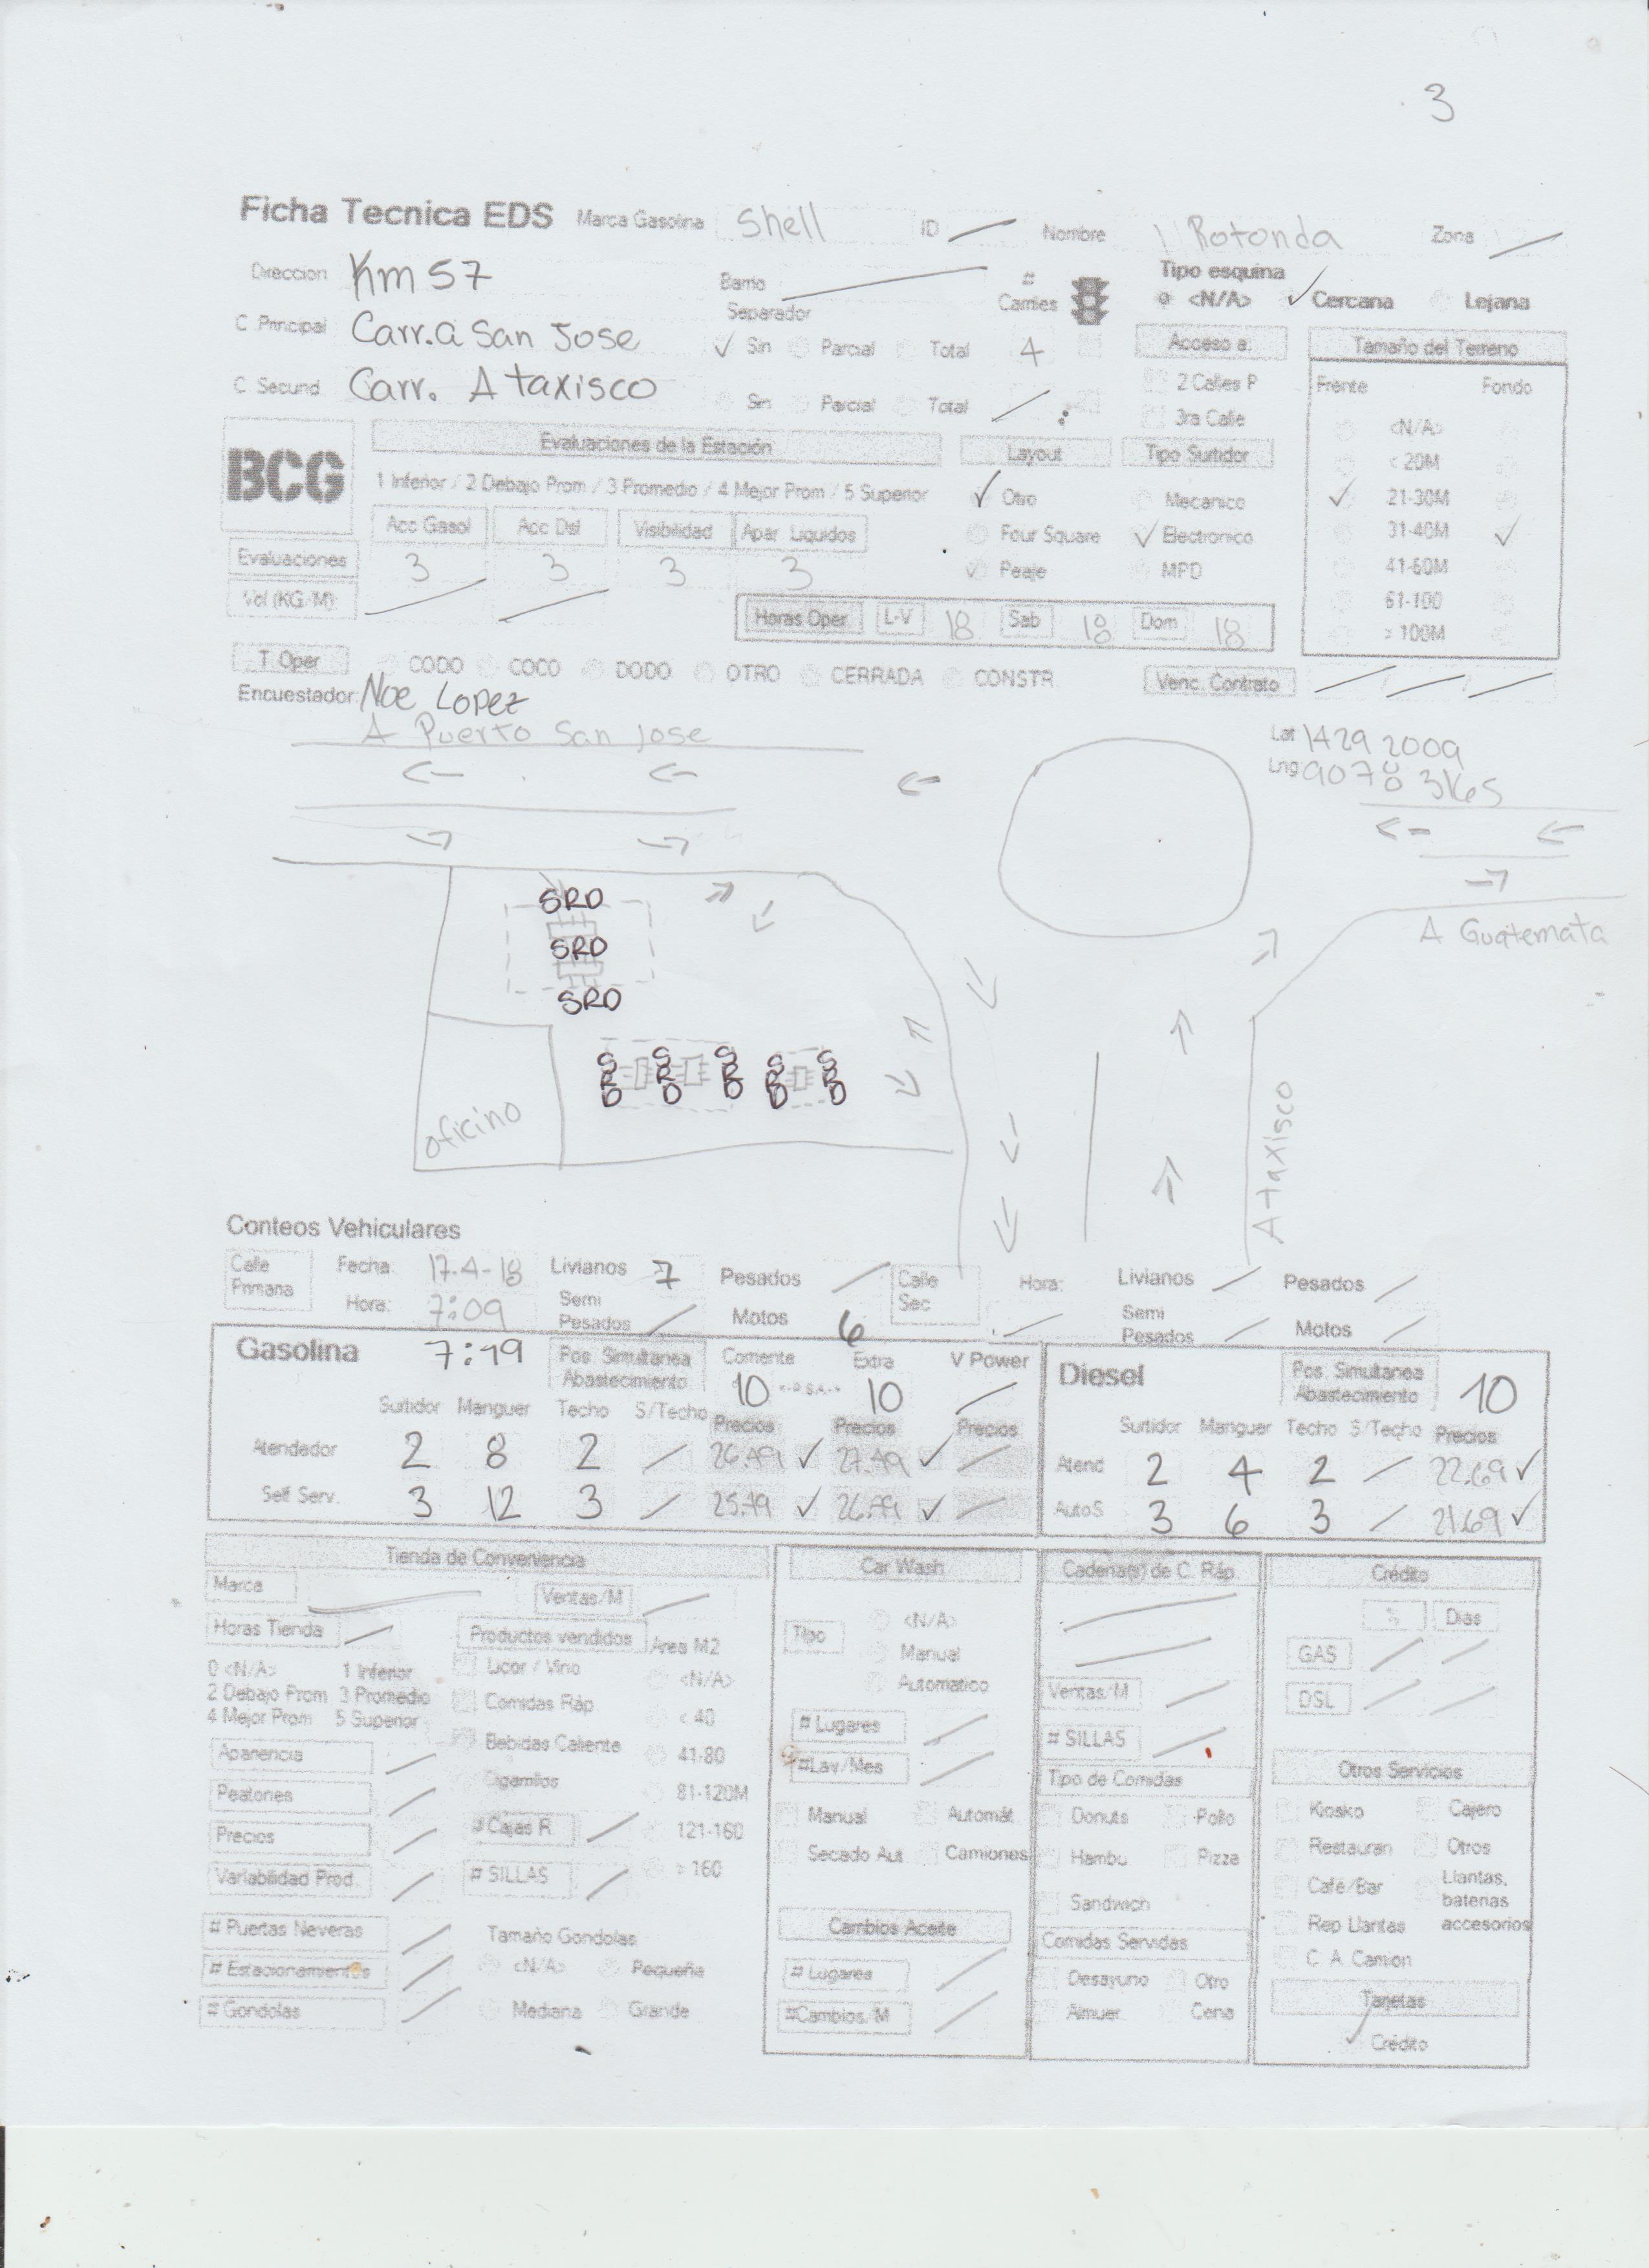 3
Ficha Tecnica EDS Marca Gasolina Shell ID Nombre Rotonda Zona
Direccion Km 57 Barrio # Carriles Tipo esquina
<N/A> Cercana Lejana
Separador
C Principal Carr. a San Jose Sin Parcial Total 4 Acceso a: Tamaño del Terreno
C Secund Carr. A taxisco Sin Parcial Total 2 Calles P Frente Fondo
3ra Calle <N/A>
BCG Evaluaciones de la Estación Layout Tipo Surtidor < 20M
1 Inferior / 2 Debajo Prom / 3 Promedio / 4 Mejor Prom / 5 Superior Otro Mecanico 21-30M
Acc Gasol Acc Dsl Visibilidad Apar Liquidos Four Square Electronico 31-40M
Evaluaciones 3 3 3 3 Peaje MPD 41-60M
Vol (KG/M) 61-100
Horas Oper L-V 18 Sab 18 Dom 18 > 100M
T. Oper CODO COCO DODO OTRO CERRADA CONSTR. Venc. Contrato
Encuestador: Noe Lopez
A Puerto San Jose
Lat 1429 2009
Lng
A Guatemala
SRD
SRD
SRD
SRD SRD SRD SRD SRD
oficina
A taxisco
Conteos Vehiculares
Calle Primaria Fecha: 17-4-18 Livianos 7 Pesados Calle Sec Hora: Livianos Pesados
Hora: 7:09 Semi Pesados Motos 6 Semi Pesados Motos
Gasolina 7:19 Pos. Simultanea Abastecimiento Corriente Extra V Power Diesel Pos. Simultanea Abastecimiento 10
10 10
Surtidor Manguer Techo S/Techo Precios Precios Precios Surtidor Manguer Techo S/Techo Precios
Atendedor 2 8 2 26.49 27.49 Atend 2 4 2 22.69
Self Serv. 3 12 3 25.49 26.49 AutoS 3 6 3 21.69
Tienda de Conveniencia Car Wash Cadena(s) de C. Ráp. Crédito
Marca Ventas/M
% Dias
Horas Tienda Productos vendidos Area M2 Tipo <N/A>
Manual
Automatico
GAS
DSL
0 <N/A> 1 Inferior
2 Debajo Prom 3 Promedio
4 Mejor Prom 5 Superior
Licor / Vino <N/A>
Comidas Ráp < 40
Bebidas Caliente 41-80
Cigarrillos 81-120M
# Cajas R. 121-160
# SILLAS > 160
Aparencia
Peatones
Precios
Variabilidad Prod.
# Puertas Neveras
# Estacionamientos
# Gondolas
Tamaño Gondolas
<N/A> Pequeña
Mediana Grande
# Lugares
#Lav/Mes
Manual Automát
Secado Aut Camiones
Cambios Aceite
# Lugares
#Cambios/M
Ventas/M
# SILLAS
Tipo de Comidas
Donuts Pollo
Hambu Pizza
Sandwich
Comidas Servidas
Desayuno Otro
Almuer. Cena
Otros Servicios
Kiosko Cajero
Restauran Otros
Café/Bar Llantas, baterias accesorios
Rep Llantas
C. A. Camion
Tarjetas
Crédito